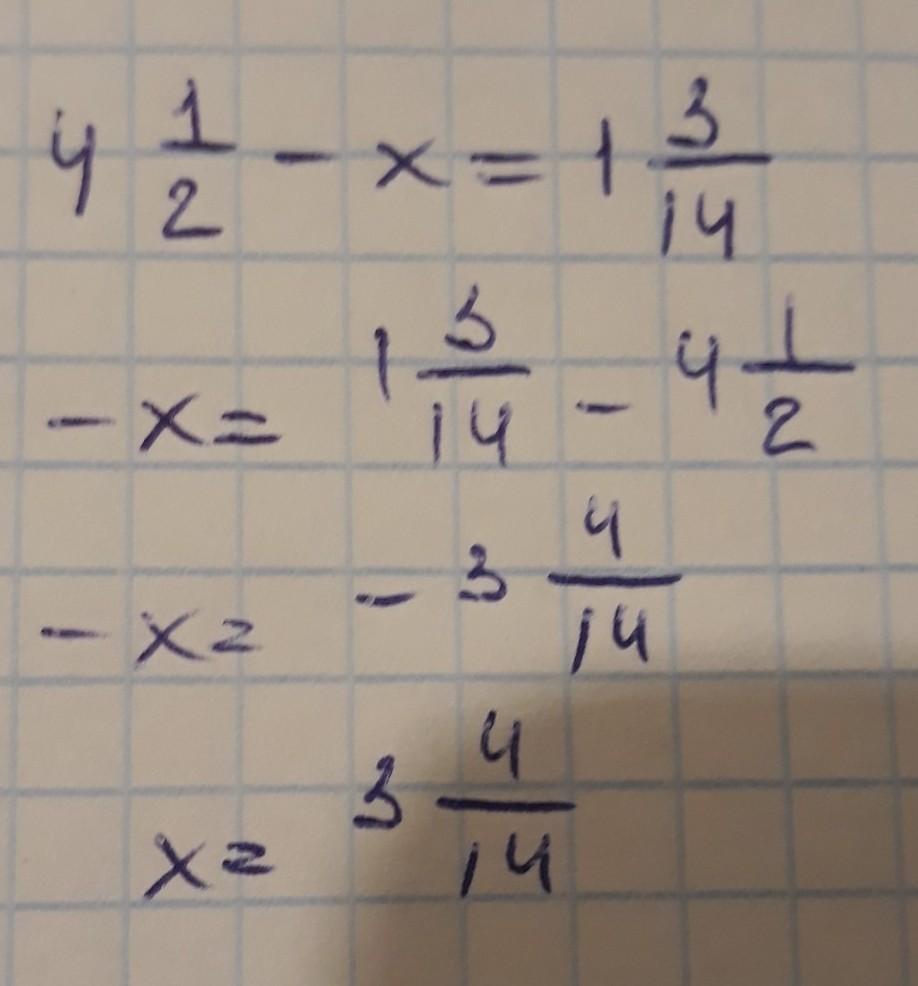 4 1/2 - x = 1 3/14
- x = 1 3/14 - 4 1/2
- x = - 3 4/14
x = 3 4/14